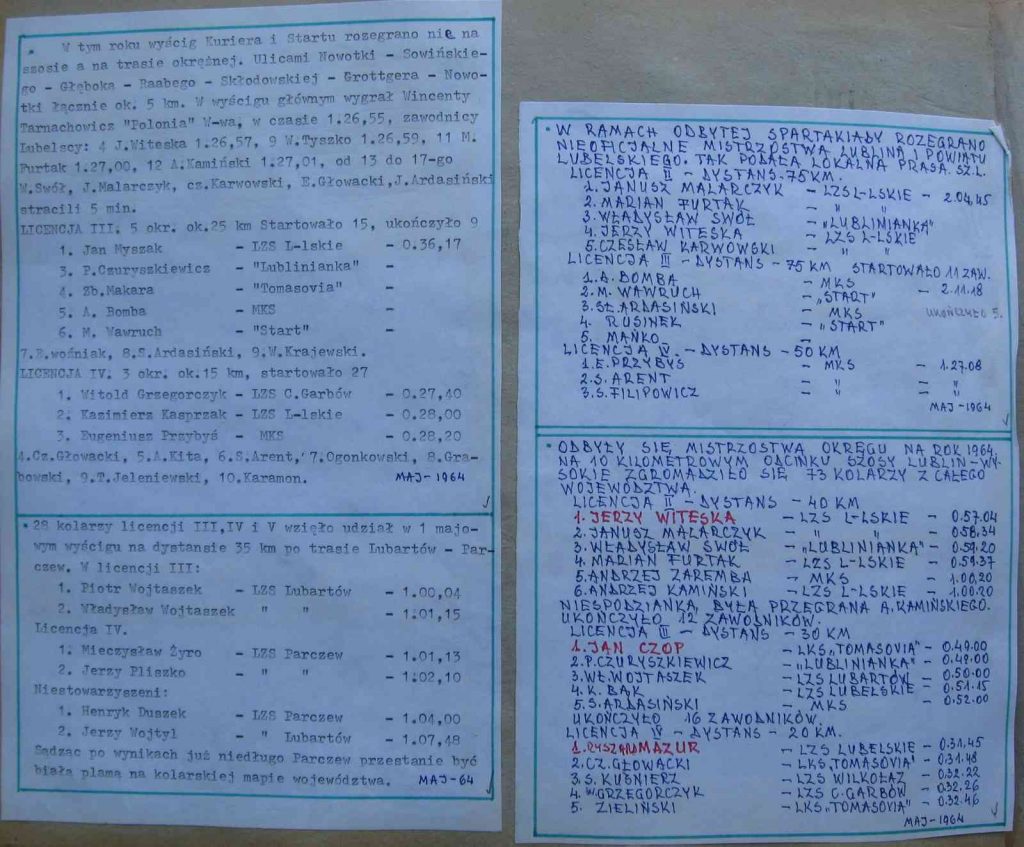 W tym roku wyścig Kuriera i Startu rozegrano nie na
szosie a na trasie okrężnej. Ulicami Nowotki - Sowińskie-
go - Głęboka - Raabego - Skłodowskiej - Grottgera - Nowo-
tki łącznie ok. 5 km. W wyścigu głównym wygrał Wincenty
Tarnachowicz "Polonia" W-wa, w czasie 1.26,55, zawodnicy
Lubelscy: 4 J.Witeska 1.26,57, 9 W.Tyszko 1.26,59, 11 M.
Furtak 1.27,00, 12 A.Kamiński 1.27,01, od 13 do 17-go
W.Swół, J.Malarczyk, cz.Karwowski, E.Głowacki,J.Ardasiński
stracili 5 min.
LICENCJA III. 5 okr. ok.25 km Startowało 15, ukończyło 9
1. Jan Myszak - LZS L-lskie - 0.36,17
3. P.Czuryszkiewicz - "Lublinianka" -
4. Zb.Makara - "Tomasovia" -
5. A. Bomba - MKS -
6. M. Wawruch - "Start" -
7.R.woźniak, 8.S.Ardasiński, 9.W.Krajewski.
LICENCJA IV. 3 okr. ok.15 km, startowało 27
1. Witold Grzegorczyk - LZS C.Garbów - 0.27,40
2. Kazimierz Kasprzak - LZS L-lskie - 0.28,00
3. Eugeniusz Przybyś - MKS - 0.28,20
4.Cz.Głowacki, 5.A.Kita, 6.S.Arent, 7.Ogonkowski, 8.Gra-
bowski, 9.T.Jeleniewski, 10.Karamon. MAJ-1964
28 kolarzy licencji III,IV i V wzięło udział w 1 majo-
wym wyścigu na dystansie 35 km po trasie Lubartów - Par-
czew. W licencji III:
1. Piotr Wojtaszek - LZS Lubartów - 1.00,04
2. Władysław Wojtaszek " " - 1.01,15
Licencja IV.
1. Mieczysław Żyro - LZS Parczew - 1.01,13
2. Jerzy Pliszko - " " - 1.02,10
Niestowarzyszeni:
1. Henryk Duszek - LZS Parczew - 1.04,00
2. Jerzy Wojtyl - " Lubartów - 1.07,48
Sądząc po wynikach już niedługo Parczew przestanie być
białą plamą na kolarskiej mapie województwa. MAJ-64
W RAMACH ODBYTEJ SPARTAKIADY ROZEGRANO
NIEOFICJALNE MISTRZOSTWA LUBLINA I POWIATU
LUBELSKIEGO. TAK PODAŁA LOKALNA PRASA. SZ.L.
LICENCJA II - DYSTANS - 75 KM.
1. JANUSZ MALARCZYK - LZS L-LSKIE - 2.04,45
2. MARIAN FURTAK - " "
3. WŁADYSŁAW SWÓŁ - "LUBLINIANKA"
4. JERZY WITESKA - LZS L-LSKIE
5. CZESŁAW KARWOWSKI - " "
LICENCJA III - DYSTANS - 75 KM STARTOWAŁO 11 ZAW.
1. A. BOMBA - MKS - 2.11.18
2. M. WAWRUCH - "START"
3. ST. ARDASIŃSKI - MKS UKOŃCZYŁO 5.
4. RUSINEK - "START"
5. MAŃKO -
LICENCJA IV. - DYSTANS - 50 KM
1. E. PRZYBYŚ - MKS - 1.27.08
2. S. ARENT - " - "
3. S. FILIPOWICZ - " - "
MAJ-1964
ODBYŁY SIĘ MISTRZOSTWA OKRĘGU NA ROK 1964.
NA 10 KILOMETROWYM ODCINKU SZOSY LUBLIN-WY-
SOKIE ZGROMADZIŁO SIĘ 73 KOLARZY Z CAŁEGO
WOJEWÓDZTWA.
LICENCJA II - DYSTANS - 40 KM
1. JERZY WITESKA - LZS L-LSKIE - 0.57.04
2. JANUSZ MALARCZYK - " " - 0.58,34
3. WŁADYSŁAW SWÓŁ - "LUBLINIANKA" - 0.59.20
4. MARIAN FURTAK - LZS L-LSKIE - 0.59.37
5. ANDRZEJ ZAREMBA - MKS - 1.00,20
6. ANDRZEJ KAMIŃSKI - LZS L-LSKIE - 1.00.20
NIESPODZIANKĄ BYŁA PRZEGRANA A. KAMIŃSKIEGO.
UKOŃCZYŁO 12 ZAWODNIKÓW.
LICENCJA III - DYSTANS - 30 KM
1. JAN CZOP - LKS "TOMASOVIA" - 0.49.00
2. P. CZURYSZKIEWICZ - "LUBLINIANKA" - 0.49.00
3. WŁ. WOJTASZEK - LZS LUBARTÓW - 0.50.00
4. K. BĄK - LZS LUBELSKIE - 0.51.15
5. S. ARDASIŃSKI - MKS - 0.52.00
UKOŃCZYŁO 16 ZAWODNIKÓW.
LICENCJA IV - DYSTANS - 20 KM.
1. RYSZARD MAZUR - LZS LUBELSKIE - 0.31,45
2. CZ. GŁOWACKI - LKS "TOMASOVIA" - 0.31.48
3. S. KUŚNIERZ - LZS WILKOŁAZ - 0.32.22
4. W. GRZEGORCZYK - LZS C. GARBÓW - 0.32.26
5. ZIELIŃSKI - LKS "TOMASOVIA" - 0.32.46
MAJ-1964